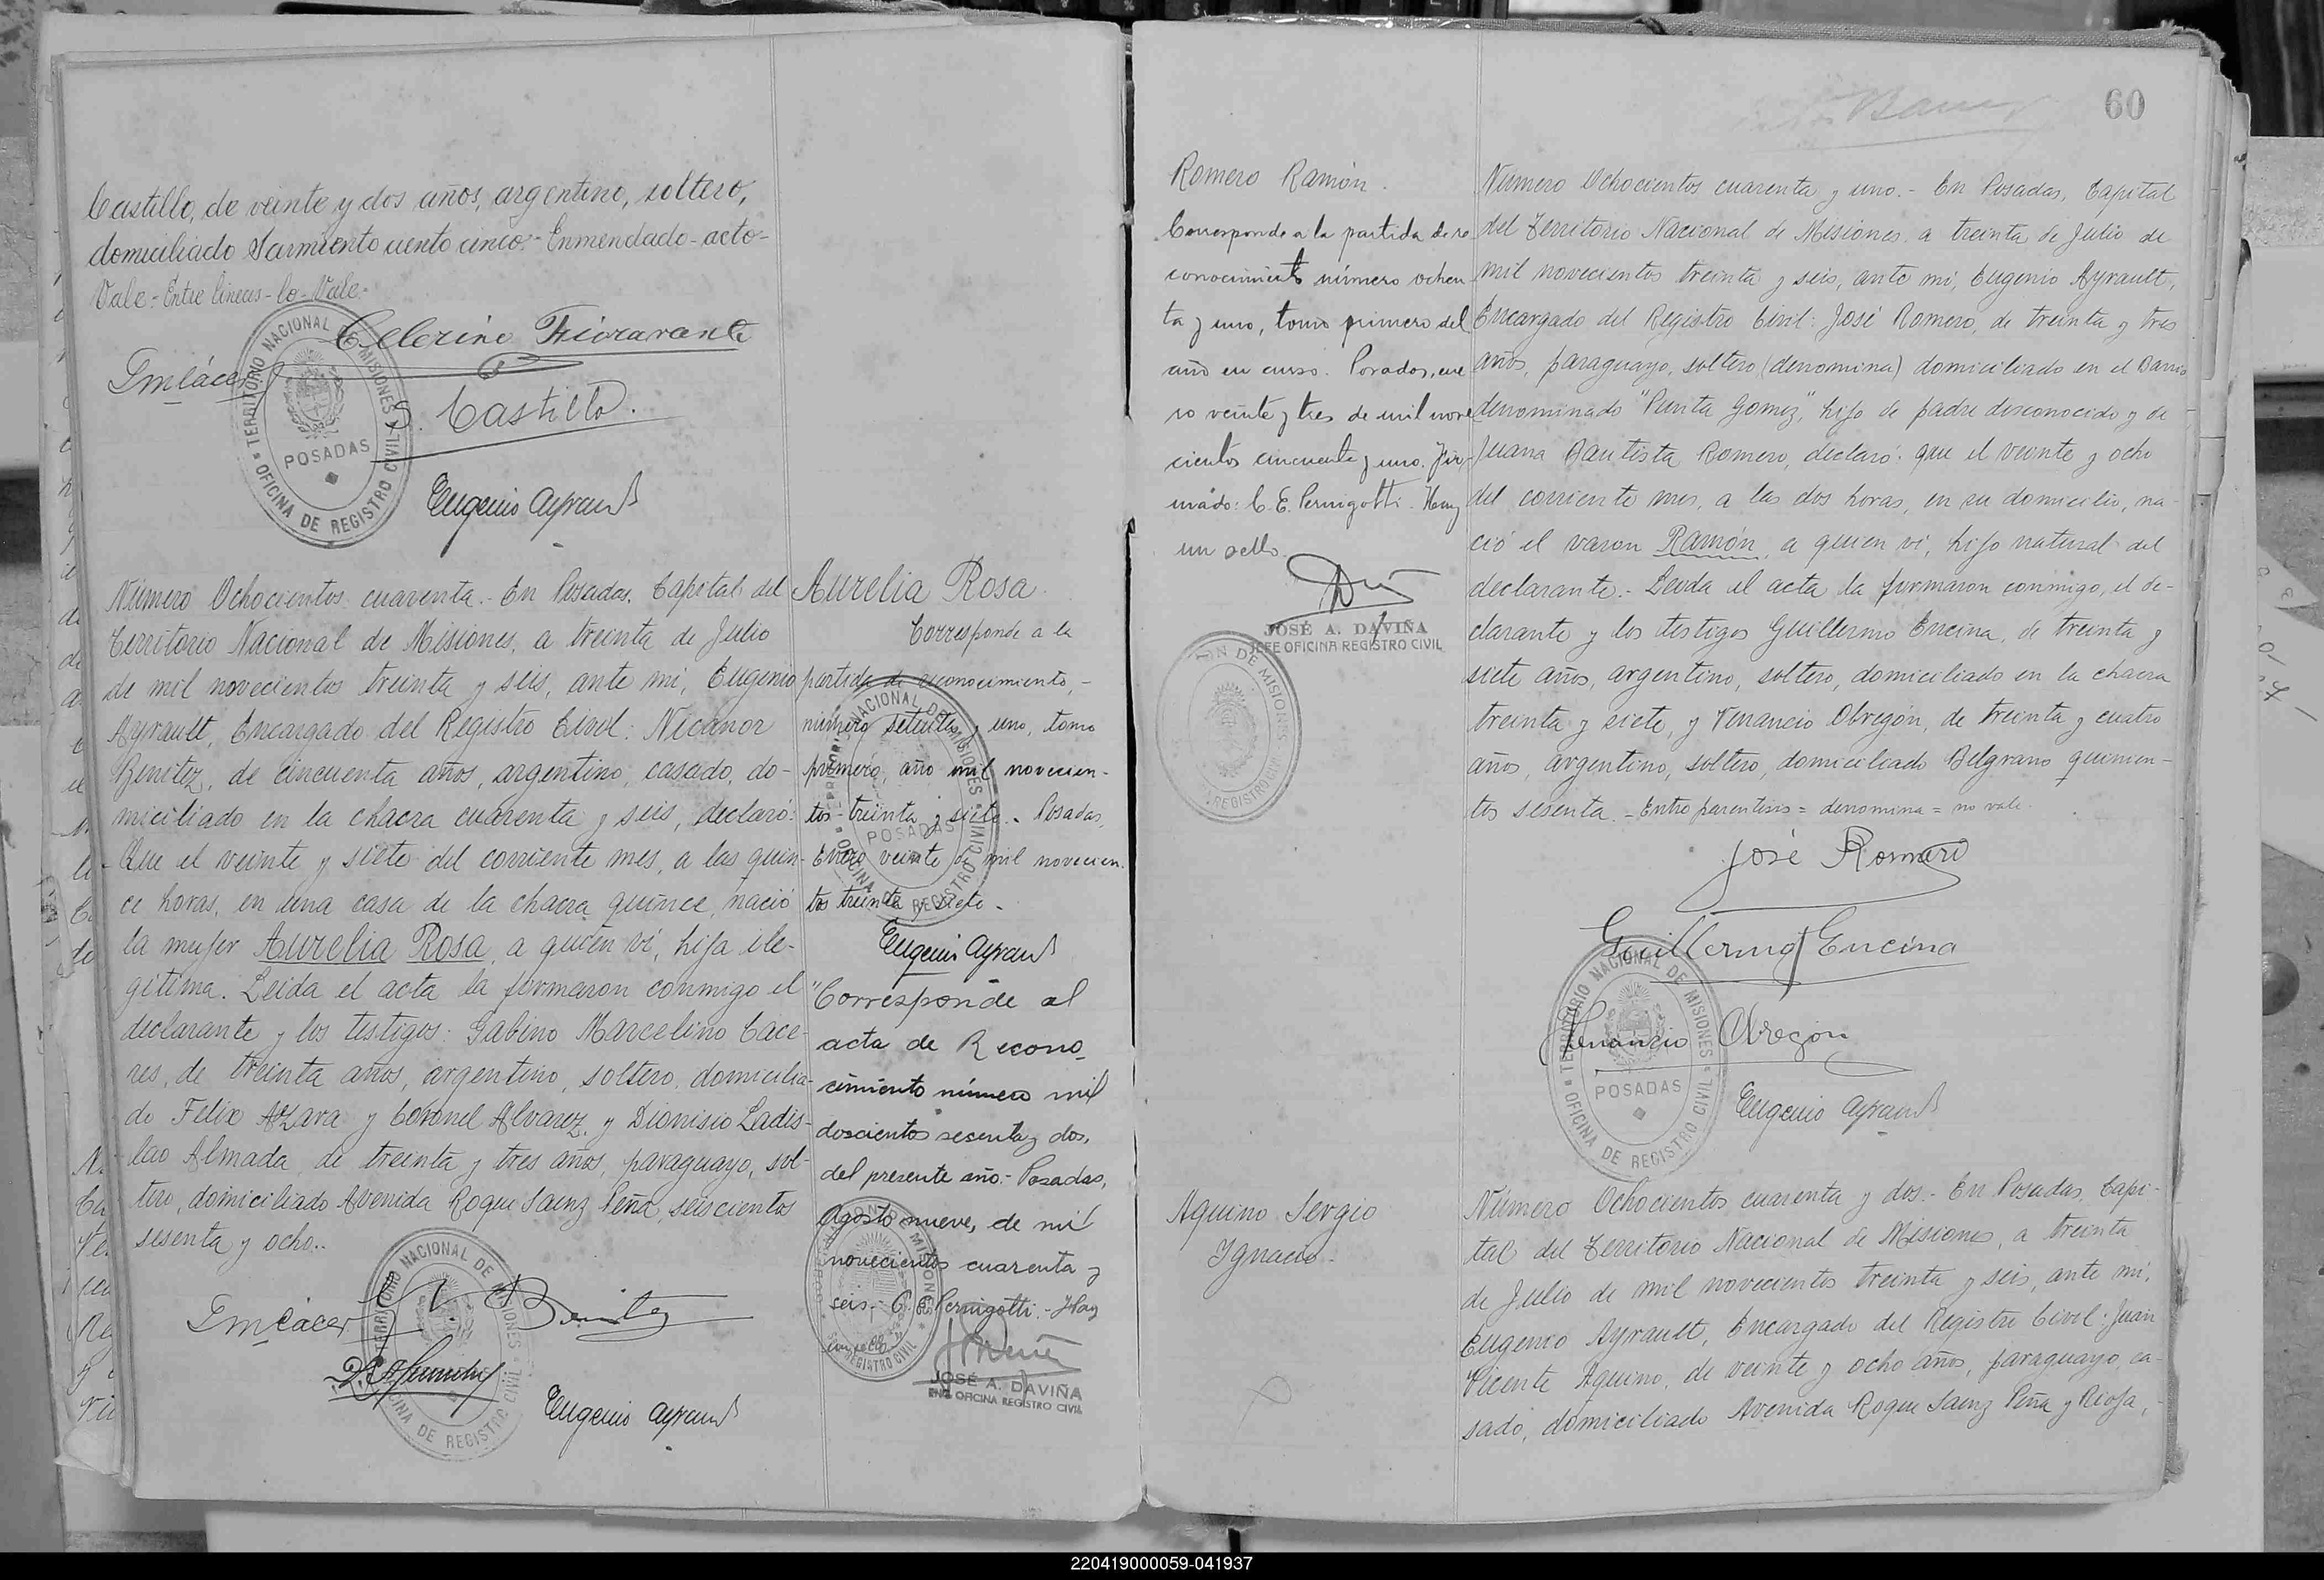 Castillo, de veinte y dos años, argentino, soltero,
domiciliado Sarmiento ciento cinco.- Enmendado-acto-
Vale.- Entre lineas-lo-Vale.-
Celerino Fioravante
S. Castillo.
Eugenio Ayrault
TERRITORIO NACIONAL DE MISIONES
POSADAS
OFICINA DE REGISTRO CIVIL
Número Ochocientos cuarenta.- En Posadas, Capital del
Territorio Nacional de Misiones, a treinta de Julio
de mil novecientos treinta y seis, ante mi, Eugenio
Ayrault, Encargado del Registro Civil: Nicanor
Benitez, de cincuenta años, argentino, casado, do-
miciliado en la chacra cuarenta y seis, declaró:
Que el veinte y siete del corriente mes, a las quin-
ce horas, en una casa de la chacra quince, nació
la mujer Aurelia Rosa, a quien vi, hija ile-
gitima. Leida el acta la firmaron conmigo el
declarante y los testigos: Gabino Marcelino Cace-
res, de treinta años, argentino, soltero, domicilia-
do Felix Azara y Coronel Alvarez, y Dionisio Ladis-
lao Almada, de treinta y tres años, paraguayo, sol-
tero, domiciliado Avenida Roque Saenz Peña, seiscientos
sesenta y ocho..
N. Benitez
Eugenio Ayrault
Aurelia Rosa.
Corresponde a la
partida de reconocimiento,-
número setenta y uno, tomo
primero, año mil novecien-
tos treinta y siete.- Posadas,
Enero veinte de mil novecien-
tos treinta y siete.-
Eugenio Ayrault
"Corresponde al
acta de Recono-
cimiento número mil
doscientos sesenta y dos,
del presente año.- Posadas,
Agosto nueve, de mil
novecientos cuarenta y
seis.- C. E. Pernigotti.- Hay
un sello"
JOSÉ A. DAVIÑA
ENC. OFICINA REGISTRO CIVIL
60
Romero Ramón.
Corresponde a la partida de re
conocimiento número ochen
ta y uno, tomo primero del
año en curso. Posadas, ene
ro veinte y tres de mil nove
cientos cincuenta y uno. Fir-
mado: C. E. Pernigotti. Hay
un sello.
JOSÉ A. DAVIÑA
JEFE OFICINA REGISTRO CIVIL
Número Ochocientos cuarenta y uno.- En Posadas, Capital
del Territorio Nacional de Misiones, a treinta de Julio de
mil novecientos treinta y seis, ante mi, Eugenio Ayrault,
Encargado del Registro Civil: José Romero, de treinta y tres
años, paraguayo, soltero (denomina) domiciliado en el Barrio
denominado "Punta Gomez," hijo de padre desconocido y de
Juana Bautista Romero, declaró: que el veinte y ocho
del corriente mes, a las dos horas, en su domicilio, na-
ció el varon Ramón, a quien vi, hijo natural del
declarante.- Leida el acta la firmaron conmigo, el de-
clarante y los testigos Guillermo Encina, de treinta y
siete años, argentino, soltero, domiciliado en la chacra
treinta y siete, y Venancio Obregón, de treinta y cuatro
años, argentino, soltero, domiciliado Belgrano quinien-
tos sesenta.- Entre parentesis = denomina = no vale.
José Romero
Guillermo Encina
Venancio Obregón
Eugenio Ayrault
TERRITORIO NACIONAL DE MISIONES
POSADAS
OFICINA DE REGISTRO CIVIL
Aquino Sergio
Ygnacio.-
Número Ochocientos cuarenta y dos.- En Posadas, Capi-
tal del Territorio Nacional de Misiones, a treinta
de Julio de mil novecientos treinta y seis, ante mi,
Eugenio Ayrault, Encargado del Registro Civil: Juan
Vicente Aquino, de veinte y ocho años, paraguayo, ca-
sado, domiciliado Avenida Roque Saenz Peña y Rioja,
220419000059-041937